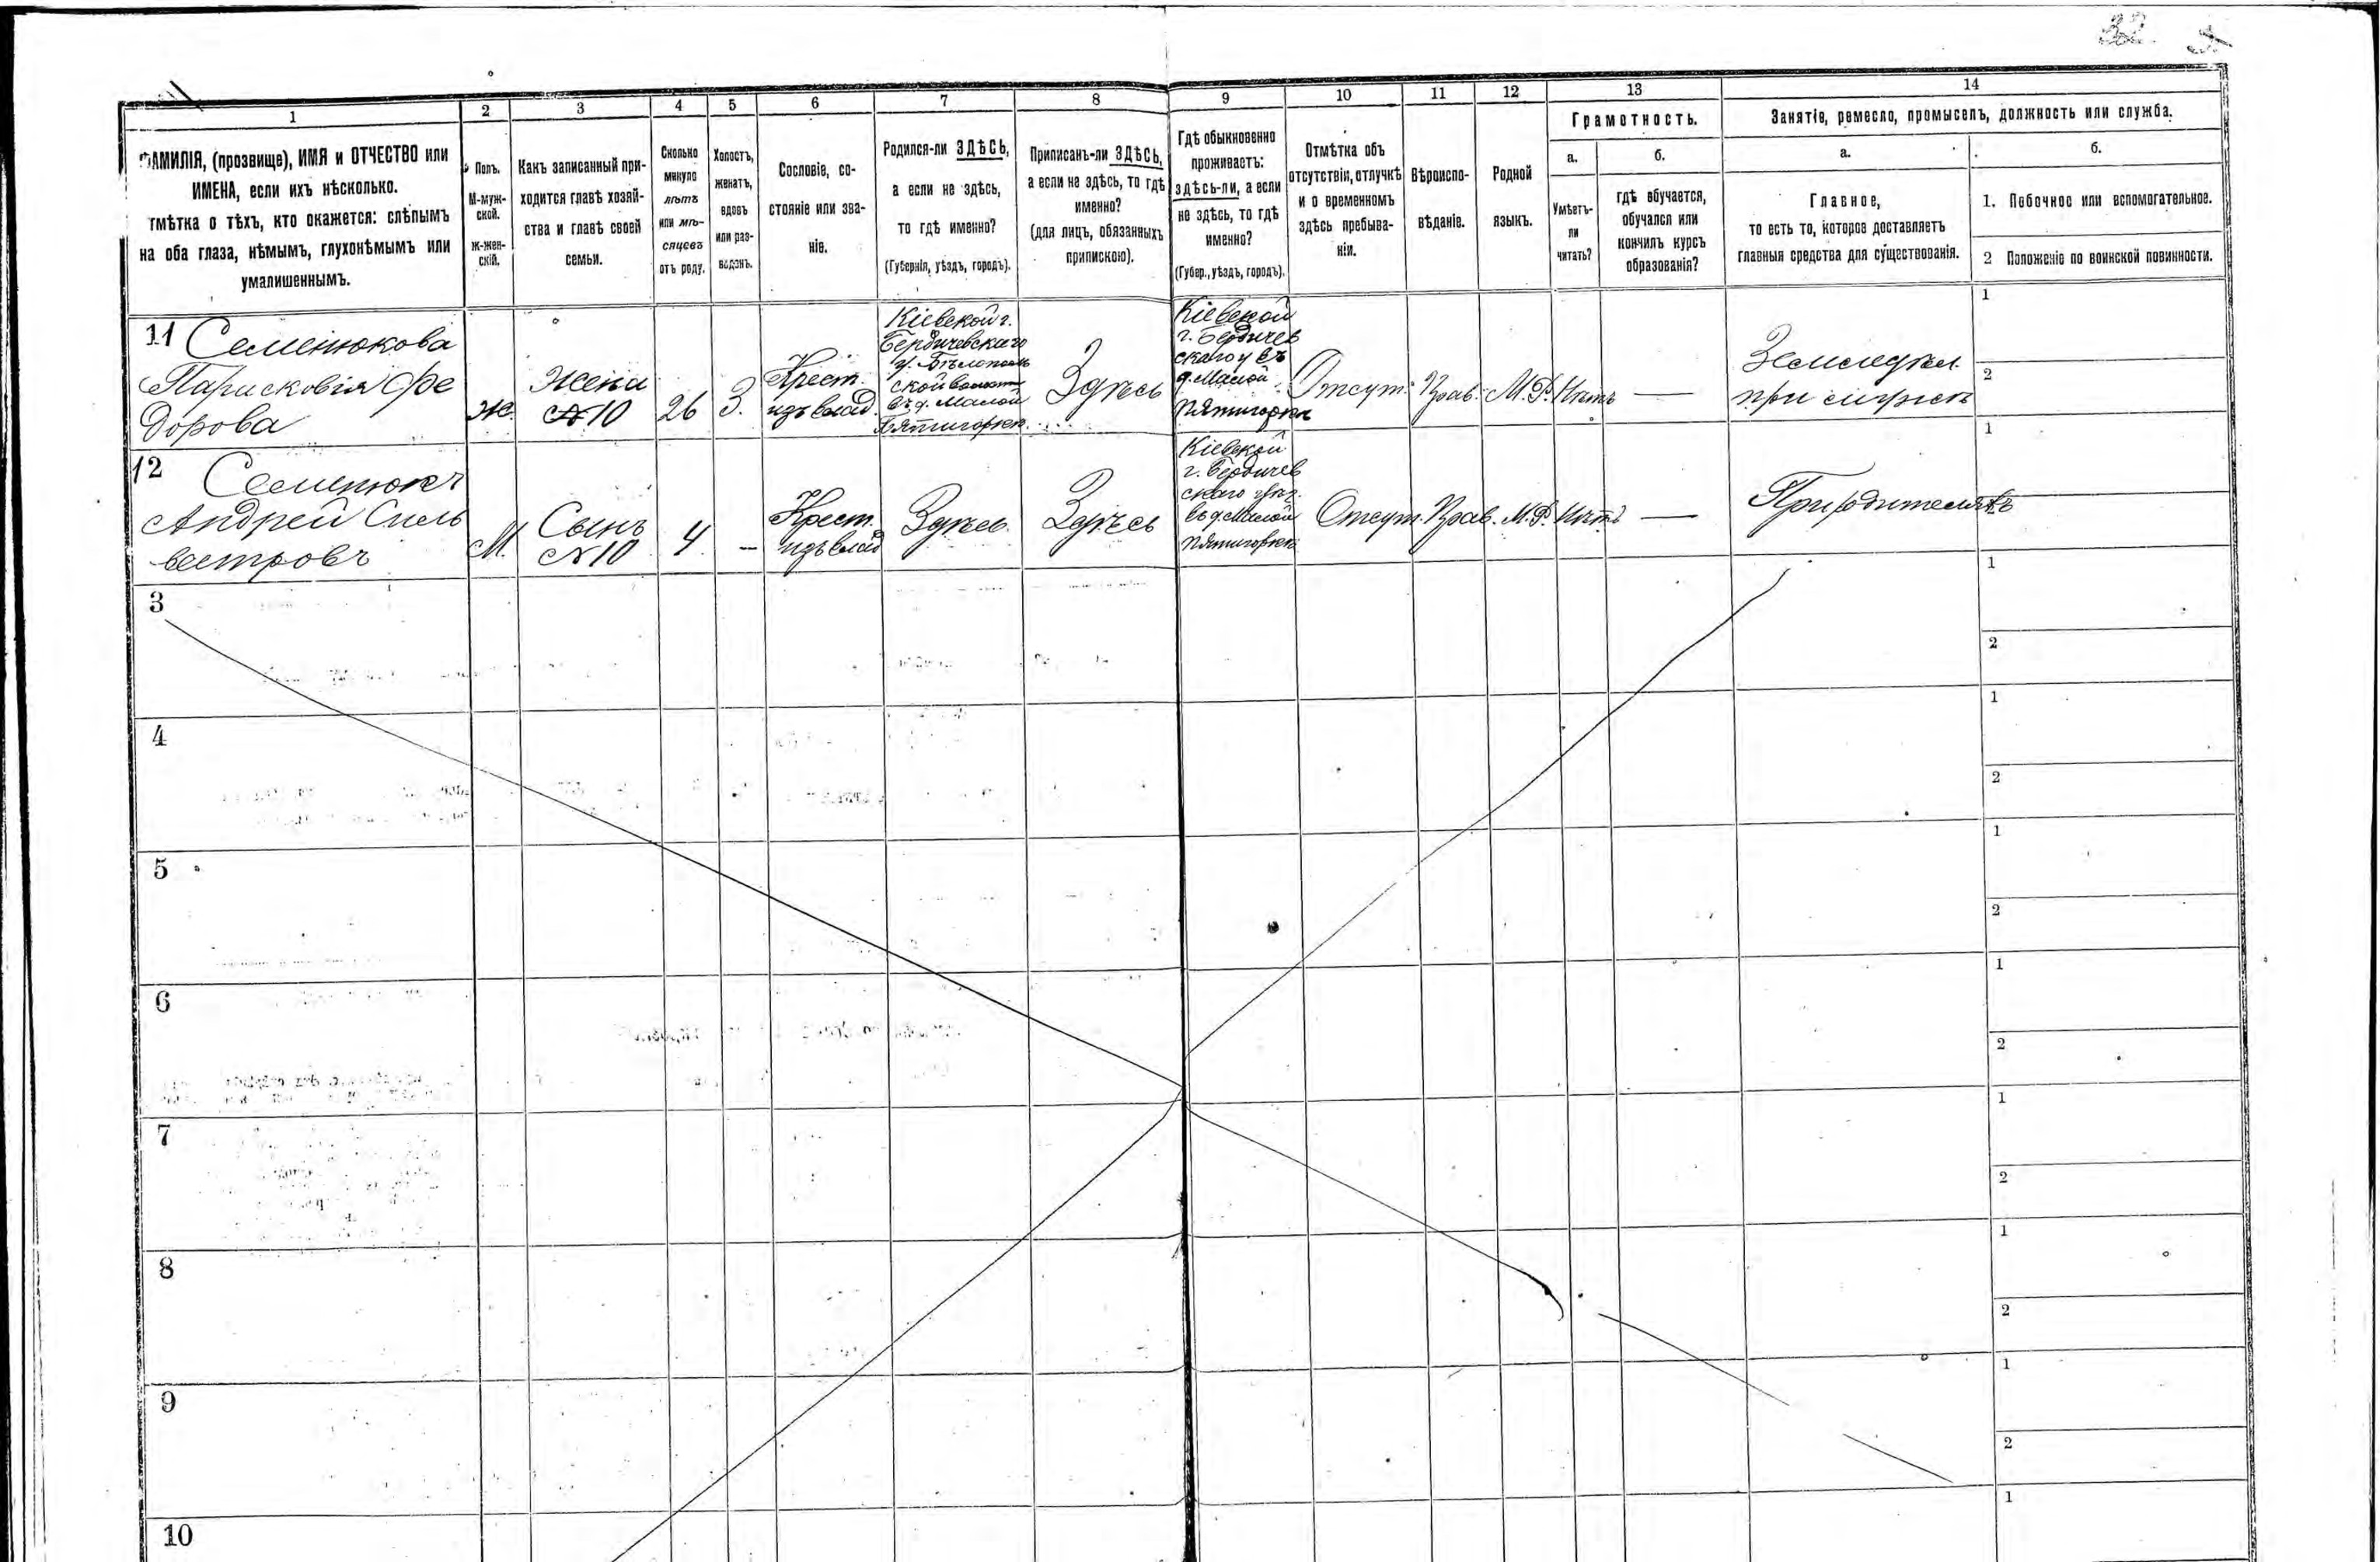 32
1 2 3 4 5 6 7 8 9 10 11 12 13 14
ФАМИЛІЯ, (прозвище), ИМЯ и ОТЧЕСТВО или
ИМЕНА, если ихъ нѣсколько.
тмѣтка о тѣхъ, кто окажется: слѣпымъ
на оба глаза, нѣмымъ, глухонѣмымъ или
умалишеннымъ.
Полъ.
М-муж-
ской.
Ж-жен-
скій.
Какъ записанный при-
ходится главѣ хозяй-
ства и главѣ своей
семьи.
Сколько
минуло
лѣтъ
или мѣ-
сяцевъ
отъ роду.
Холостъ,
женатъ,
вдовъ
или раз-
веденъ.
Сословіе, со-
стояніе или зва-
ніе.
Родился-ли ЗДѢСЬ,
а если не здѣсь,
то гдѣ именно?
(Губернія, уѣздъ, городъ).
Приписанъ-ли ЗДѢСЬ,
а если не здѣсь, то гдѣ
именно?
(для лицъ, обязанныхъ
припискою).
Гдѣ обыкновенно
проживаетъ:
здѣсь-ли, а если
не здѣсь, то гдѣ
именно?
(Губер., уѣздъ, городъ).
Отмѣтка объ
отсутствіи, отлучкѣ
и о временномъ
здѣсь пребыва-
ніи.
Вѣроиспо-
вѣданіе.
Родной
языкъ.
Грамотность.
а.
Умѣетъ-
ли
читать?
б.
гдѣ обучается,
обучался или
кончилъ курсъ
образованія?
Занятіе, ремесло, промыселъ, должность или служба.
а.
Главное,
то есть то, которое доставляетъ
главныя средства для существованія.
б.
1. Побочное или вспомогательное.
2 Положеніе по воинской повинности.
11 Семенюкова
Парасковія Фе
дорова
Ж.
Жена
№10
26
З.
Крест.
изъ влад.
Кіевской г.
Бердичевскаго
у. Бѣлополь
ской волости
въ д. Малой
Пятигорке
Здѣсь
Кіевской
г. Бердичев
скаго у въ
д. Малой
Пятигорке
Отсут. Прав. М.Р. Нѣтъ —
Земледѣл.
при мужѣ
1
2
12 Семенюкъ
Андрей Силь
вестровъ
М.
Сынъ
№10
4
—
Крест.
изъ влад
Здѣсь
Здѣсь
Кіевской
г. Бердичев
скаго уѣз.
въ д. Малой
Пятигорке
Отсут. Прав. М.Р. Нѣтъ —
При родителяхъ
1
3
1
2
4
1
2
5
1
2
6
1
2
7
1
2
8
1
2
9
1
2
10
1